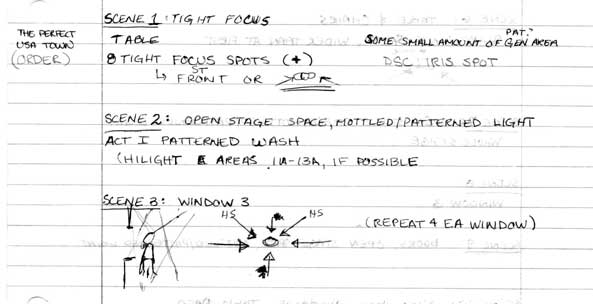 SCENE 1: TIGHT FOCUS
THE PERFECT
USA TOWN
(ORDER)
TABLE
PAT.
SOME SMALL AMOUNT OF GEN AREA
8 TIGHT FOCUS SPOTS (+)
DSC: IRIS SPOT
ST
FRONT OR
SCENE 2: OPEN STAGE SPACE, MOTTLED/PATTERNED LIGHT
ACT I PATTERNED WASH
(HILIGHT AREAS 11A-13A, IF POSSIBLE
SCENE 3: WINDOW 3
HS
HS
(REPEAT 4 EA WINDOW)